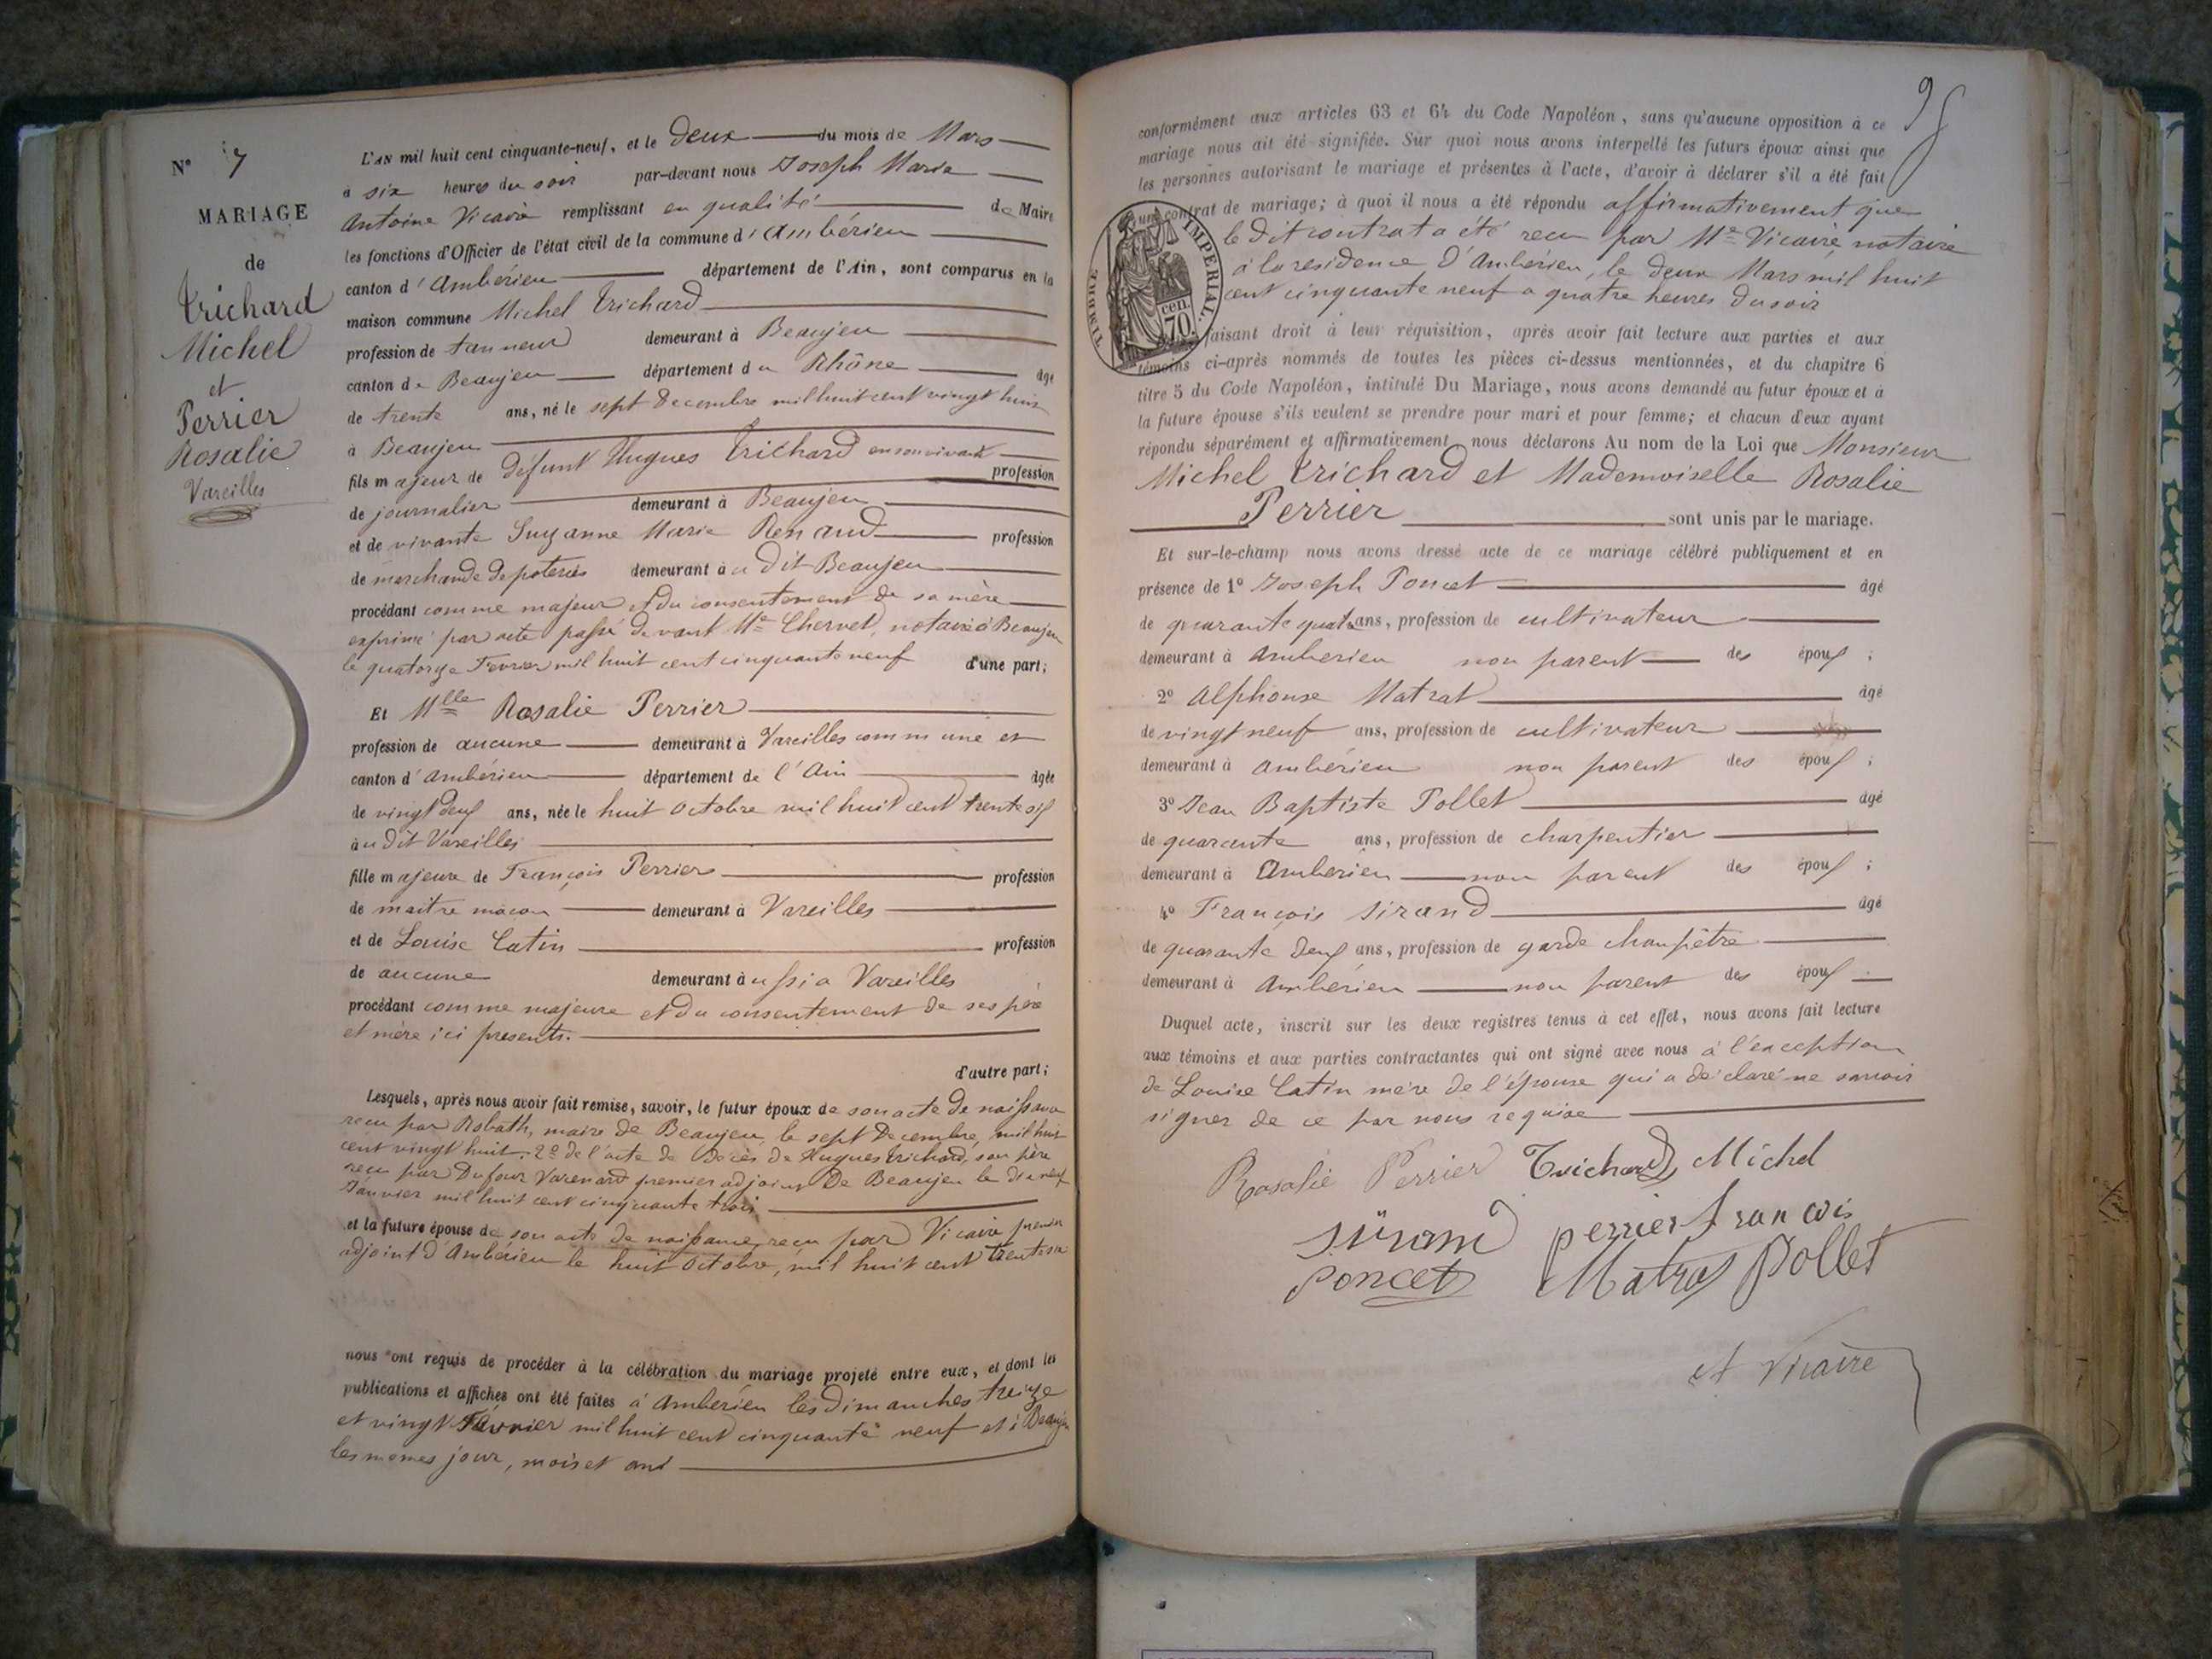 N° 7
MARIAGE
de
Trichard
Michel
et
Perrier
Rosalie
Vareilles
L'AN mil huit cent cinquante-neuf, et le deux du mois de Mars
à six heures du soir par-devant nous Joseph Marie
Antoine Vicaire remplissant en qualité de Maire
les fonctions d'Officier de l'état civil de la commune d'Ambérieu
canton d'Ambérieu département de l'Ain, sont comparus en la
maison commune Michel Trichard
profession de tanneur demeurant à Beaujeu
canton de Beaujeu département du Rhône âgé
de trente ans, né le sept Decembre mil huit cent vingt huit
à Beaujeu
fils majeur de défunt Hugues Trichard en son vivant profession
de journalier demeurant à Beaujeu
et de vivante Suzanne Marie Renaud profession
de marchande de poteries demeurant à u dit Beaujeu
procédant comme majeur et du consentement de sa mère
exprimé par acte passé devant Me Chervet, notaire à Beaujeu
le quatorze Fevrier mil huit cent cinquante neuf d'une part;
Et Mlle Rosalie Perrier
profession de aucune demeurant à Vareilles commune et
canton d'Ambérieu département de l'Ain âgée
de vingt deux ans, née le huit Octobre mil huit cent trente six
à u dit Vareilles
fille majeure de François Perrier profession
de maitre macon demeurant à Vareilles
et de Louise Catin profession
de aucune demeurant à ussi a Vareilles
procédant comme majeure et du consentement de ses père
et mère ici présents.
d'autre part;
Lesquels, après nous avoir fait remise, savoir, le futur époux de son acte de naissance
recu par Robath, maire de Beaujeu le sept Decembre, mil huit
cent vingt huit. 2° de l'acte de Décès de Hugues Trichard, son père
recu par Dufour Varenard premier adjoint De Beaujeu le dix neuf
Janvier mil huit cent cinquante trois
et la future épouse de son acte de naissance, recu par Vicaire premier
adjoint d'Ambérieu le huit Octobre, mil huit cent trente six
nous ont requis de procéder à la célébration du mariage projeté entre eux, et dont les
publications et affiches ont été faites à Ambérieu les dimanches treize
et vingt Février mil huit cent cinquante neuf et à Beaujeu
les memes jour, mois et an
95
conformément aux articles 63 et 64 du Code Napoléon, sans qu'aucune opposition à ce
mariage nous ait été signifiée. Sur quoi nous avons interpellé les futurs époux ainsi que
les personnes autorisant le mariage et présentes à l'acte, d'avoir à déclarer s'il a été fait
un contrat de mariage; à quoi il nous a été répondu affirmativement que
le dit contrat a été recu par Me Vicaire, notaire
à la residence d'Ambérieu, le deux Mars mil huit
cent cinquante neuf a quatre heures du soir
TIMBRE IMPERIAL.
cen.
70.
faisant droit à leur réquisition, après avoir fait lecture aux parties et aux
témoins ci-après nommés de toutes les pièces ci-dessus mentionnées, et du chapitre 6
titre 5 du Code Napoléon, intitulé Du Mariage, nous avons demandé au futur époux et à
la future épouse s'ils veulent se prendre pour mari et pour femme; et chacun d'eux ayant
répondu séparément et affirmativement nous déclarons Au nom de la Loi que Monsieur
Michel Trichard et Mademoiselle Rosalie
Perrier sont unis par le mariage.
Et sur-le-champ nous avons dressé acte de ce mariage célébré publiquement et en
présence de 1° Joseph Poncet âgé
de quarante quatre ans, profession de cultivateur
demeurant à Amberieu non parent des époux;
2° Alphonse Matrat âgé
de vingt neuf ans, profession de cultivateur
demeurant à Ambérieu non parent des époux;
3° Jean Baptiste Pollet âgé
de quarante ans, profession de charpentier
demeurant à Amberieu non parent des époux;
4° François Sirand âgé
de quarante deux ans, profession de garde champêtre
demeurant à Ambérieu non parent des époux
Duquel acte, inscrit sur les deux registres tenus à cet effet, nous avons fait lecture
aux témoins et aux parties contractantes qui ont signé avec nous à l'exception
de Louise Catin mère de l'épouse qui a déclaré ne savoir
signer de ce par nous requise
Rosalie Perrier Trichard Michel
Sirand perrier francois
Poncet Matrat Pollet
A Vicaire